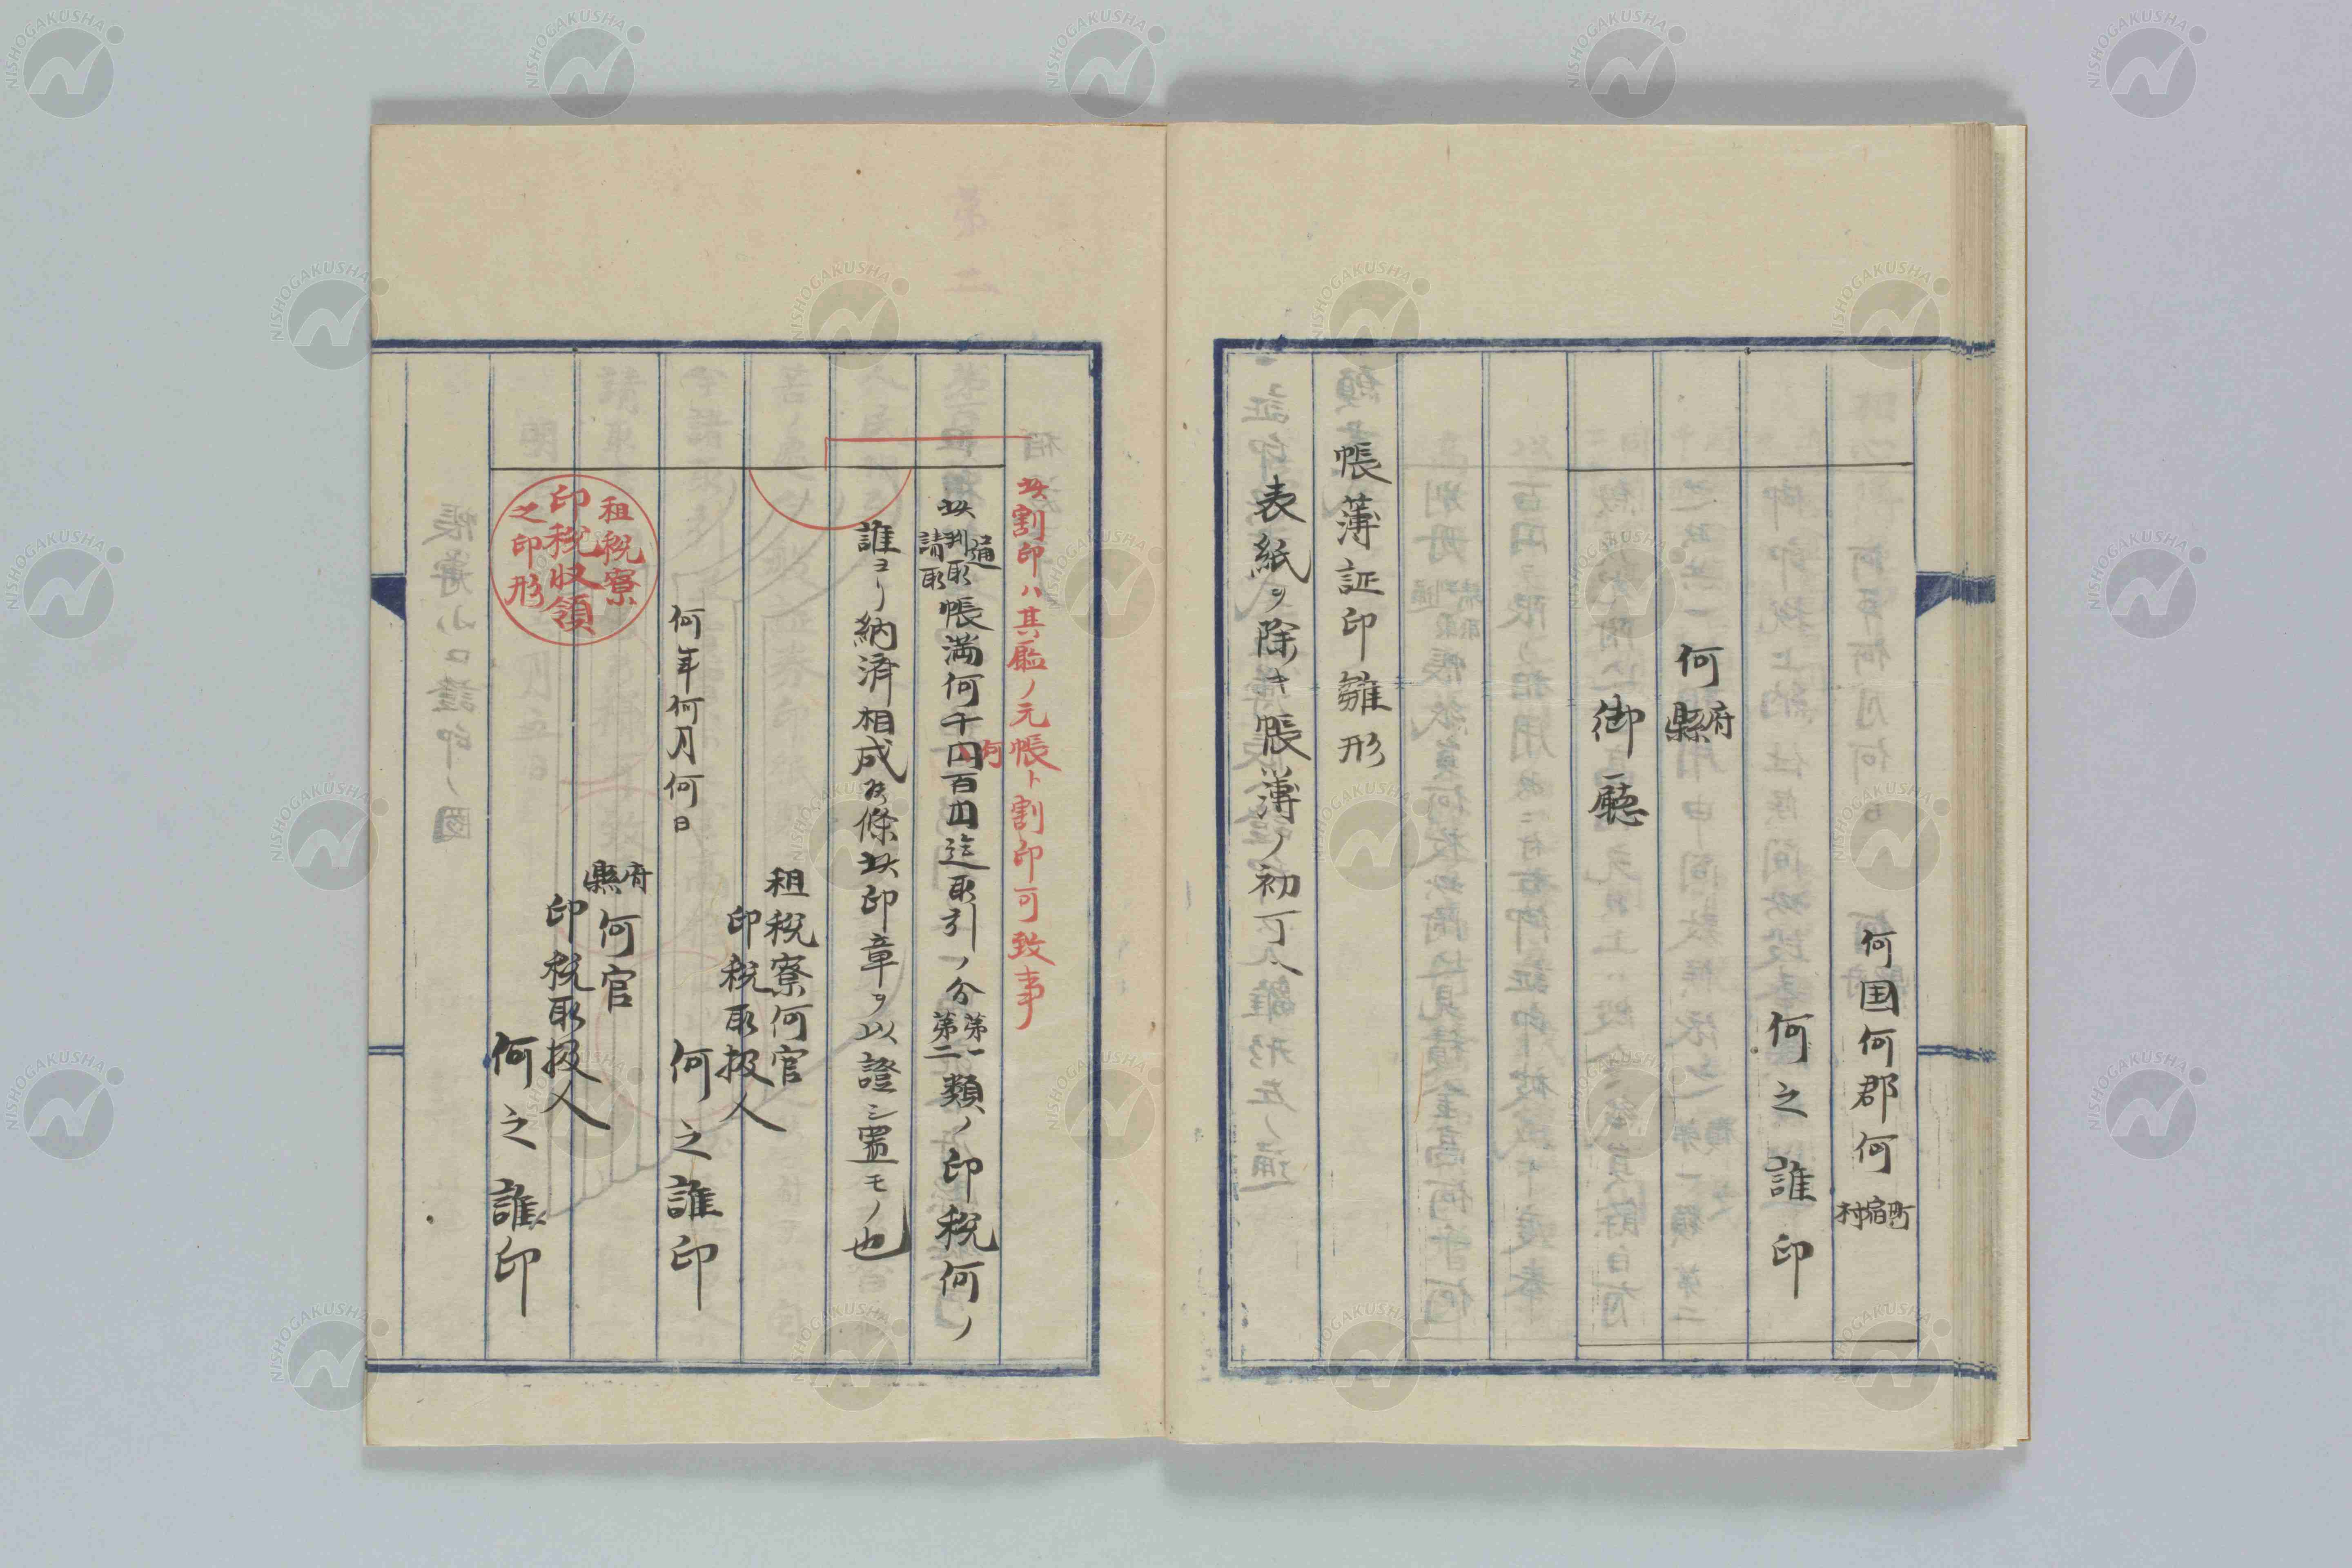 何国何郡何町宿村
何之誰印
何府縣
御廳
帳薄証印雛形
表紙ヲ除キ帳薄ノ初丁ヘ
此割印ハ其廳ノ元帳ト割印可致事
此通判取請取帳満何千円何百円迄取引ノ分第一第二類ノ印税何ノ
誰ヨリ納済相成候條此印章ヲ以證シ置モノ也
租税寮何官
印税取扱人
何之誰印
何年何月何日
府縣何官
印税取扱人
何之誰印
租税寮
印税収領
之印形
NISHOGAKUSHA